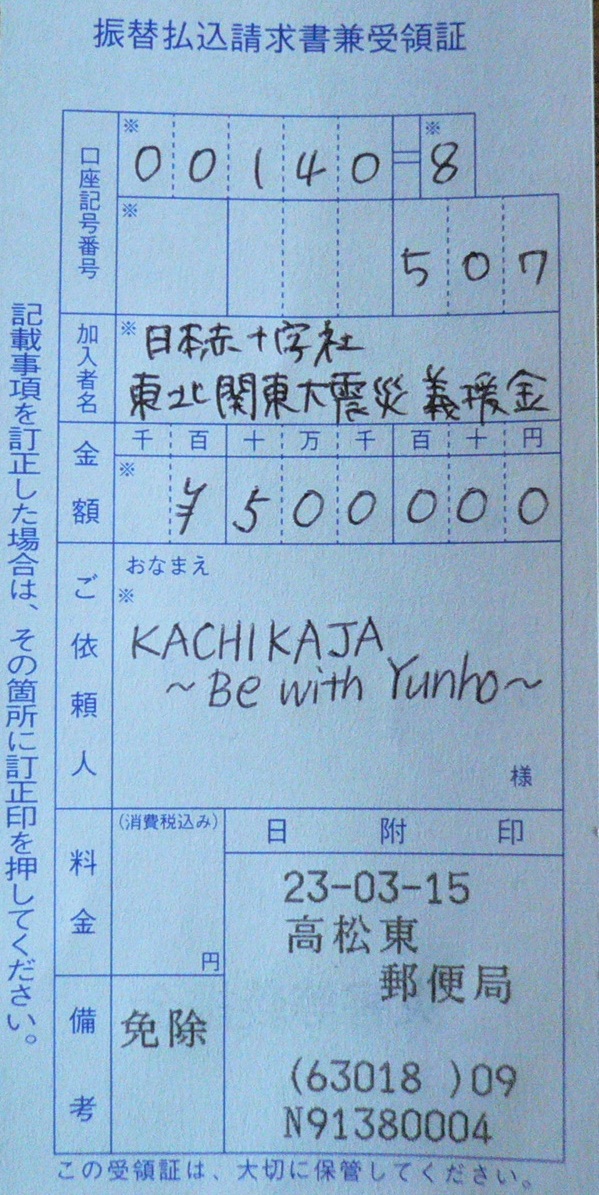 振替払込請求書兼受領証
口座記号番号
※ ※
00140=8
※
507
加入者名
※日本赤十字社
東北関東大震災義援金
金額
千百十万千百十円
※
¥500000
ご依頼人
おなまえ
※
KACHIKAJA
~Be with Yunho~
様
料金
(消費税込み)
円
日附印
23-03-15
高松東
郵便局
(63018 )09
N91380004
備考
免除
この受領証は、大切に保管してください。
記載事項を訂正した場合は、その箇所に訂正印を押してください。